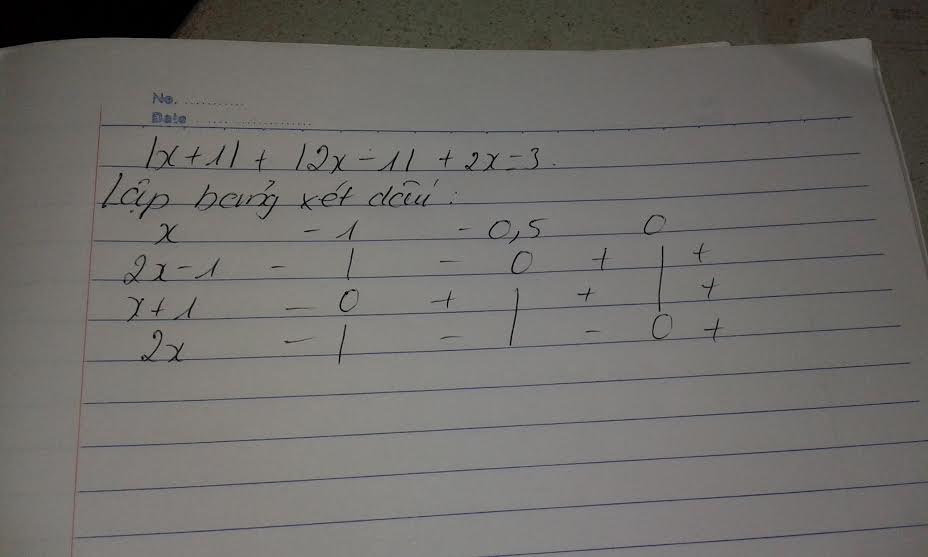 No. ............
Date ........................
|x + 1| + |2x - 1| + 2x = 3.
Lập bảng xét dấu :
x - 1 - 0,5 0
2x - 1 - | - 0 + | +
x + 1 - 0 + | + | +
2x - | - | - 0 +